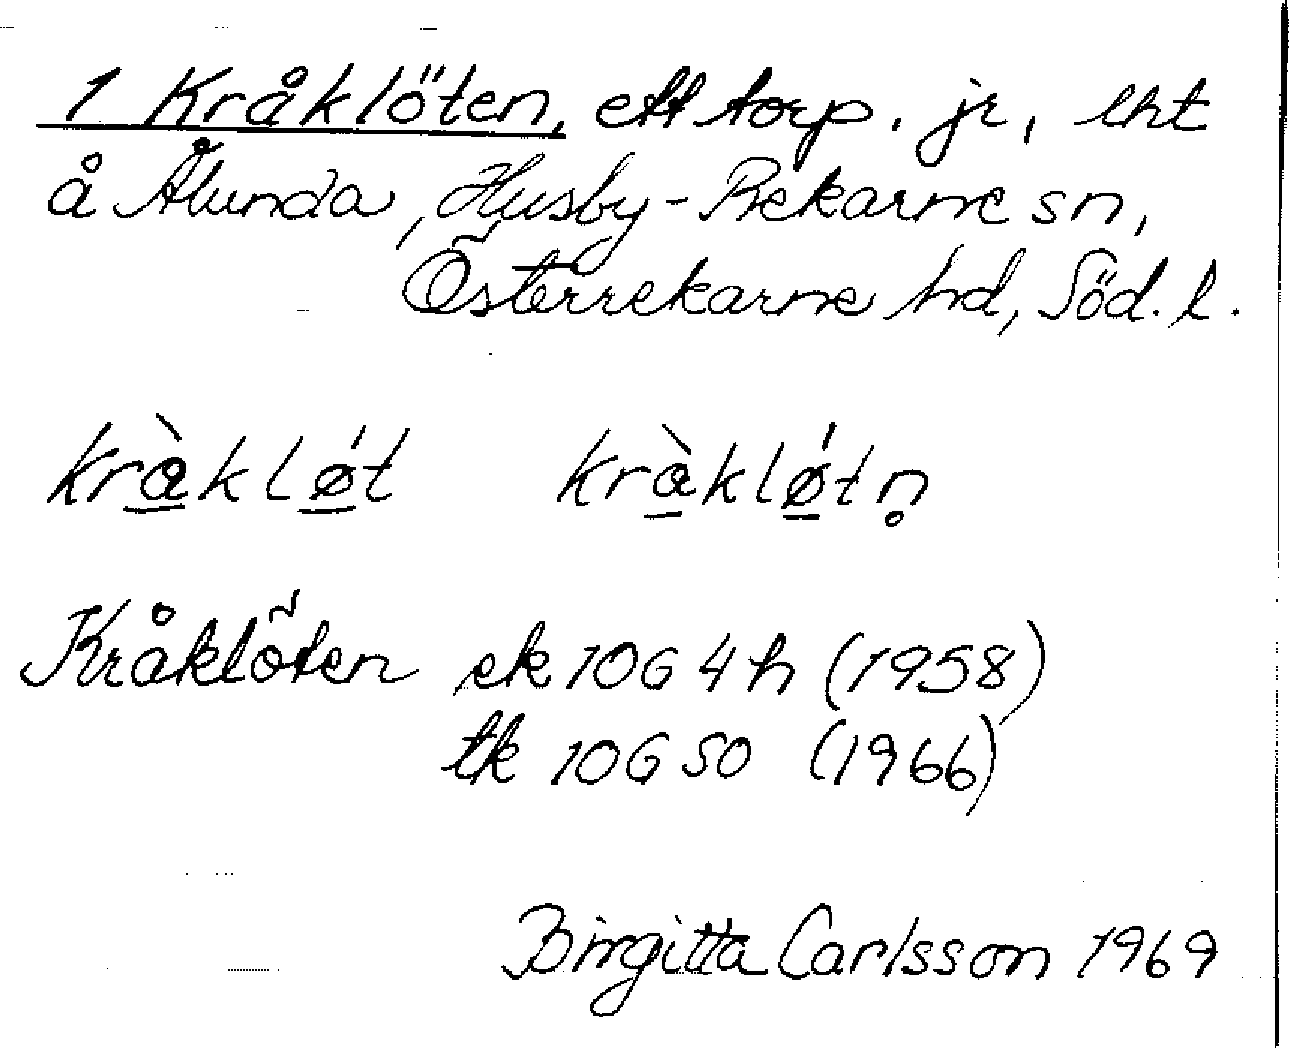 1 Kråklöten, ett torp. jr, lht
å Ålunda, Husby-Rekarne sn,
Österrekarne hd, Söd. l.
kràkløt kràkløtn̥
Kråklöten ek 10G 4h (1958)
tk 10G SO (1966)
Birgitta Carlsson 1969